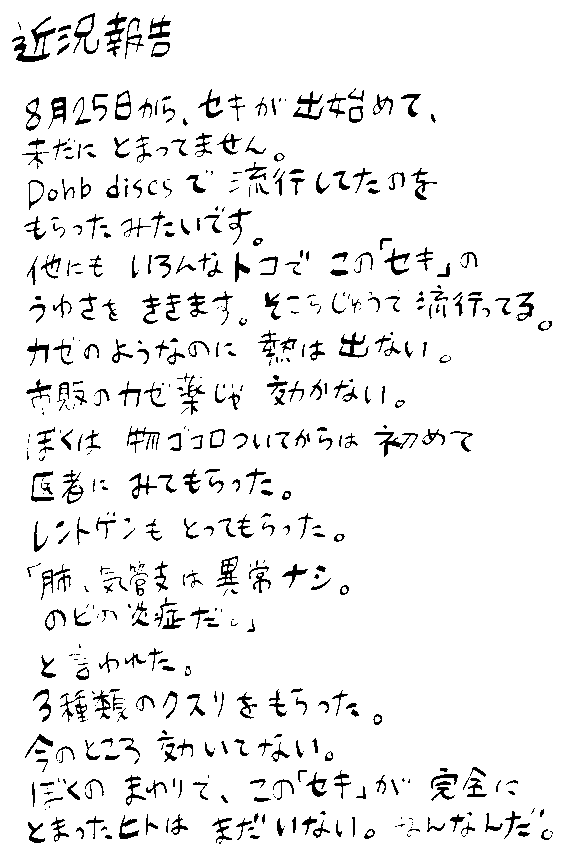 近況報告
8月25日から、セキが出始めて、
未だにとまってません。
Dohb discsで流行してたのを
もらったみたいです。
他にもいろんなトコでこの「セキ」の
うわさをききます。そこらじゅうで流行ってる。
カゼのようなのに熱は出ない。
市販のカゼ薬じゃ効かない。
ぼくは物ゴコロついてからは初めて
医者にみてもらった。
レントゲンもとってもらった。
「肺、気管支は異常ナシ。
のどの炎症だ。」
と言われた。
3種類のクスリをもらった。
今のところ効いてない。
ぼくのまわりで、この「セキ」が完全に
とまったヒトはまだいない。なんなんだ。